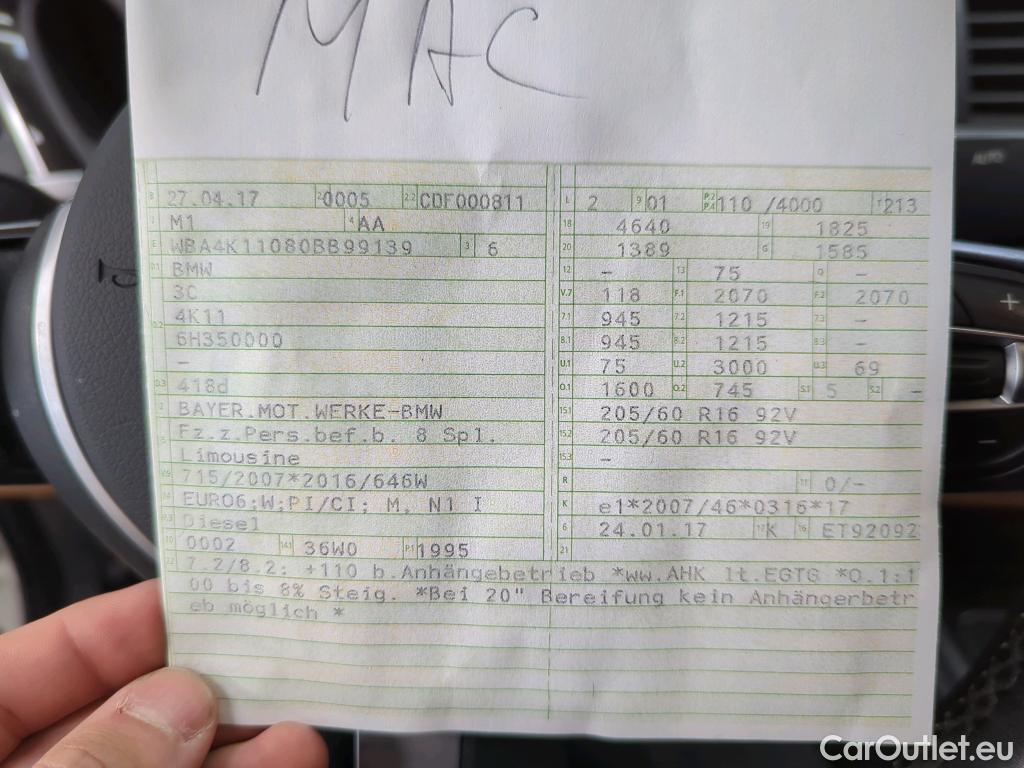 MAC
B 27.04.17 2.1 0005 2.2 CDF000811
J M1 4 AA
E WBA4K11080BB99139 3 6
D.1 BMW
3C
4K11
D.2 6H350000
–
D.3 418d
2 BAYER.MOT.WERKE-BMW
5 Fz.z.Pers.bef.b. 8 Spl.
Limousine
V.9 715/2007*2016/646W
14 EURO6;W;PI/CI; M, N1 I
P.3 Diesel
10 0002 14.1 36W0 P.1 1995
L 2 9 01 P.2 P.4 110 /4000 T 213
18 4640 19 1825
20 1389 G 1585
12 – 13 75 Q –
V.7 118 F.1 2070 F.2 2070
7.1 945 7.2 1215 7.3 –
8.1 945 8.2 1215 8.3 –
U.1 75 U.2 3000 U.3 69
O.1 1600 O.2 745 S.1 5 S.2 –
15.1 205/60 R16 92V
15.2 205/60 R16 92V
15.3 –
R 11 0/–
K e1*2007/46*0316*17
6 24.01.17 17 K 16 ET92092
21
22 7.2/8.2: +110 b.Anhängebetrieb *ww.AHK lt.EGTG *O.1:1
00 bis 8% Steig. *Bei 20" Bereifung kein Anhängerbetr
eb möglich *
AUTO
+
CarOutlet.eu